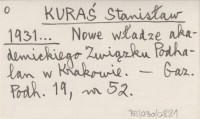 o KURAŚ Stanisław
1931... Nowe władze aka-
demickiego Związku Podha-
lan w Krakowie. — Gaz.
Podh. 19, nr 52.